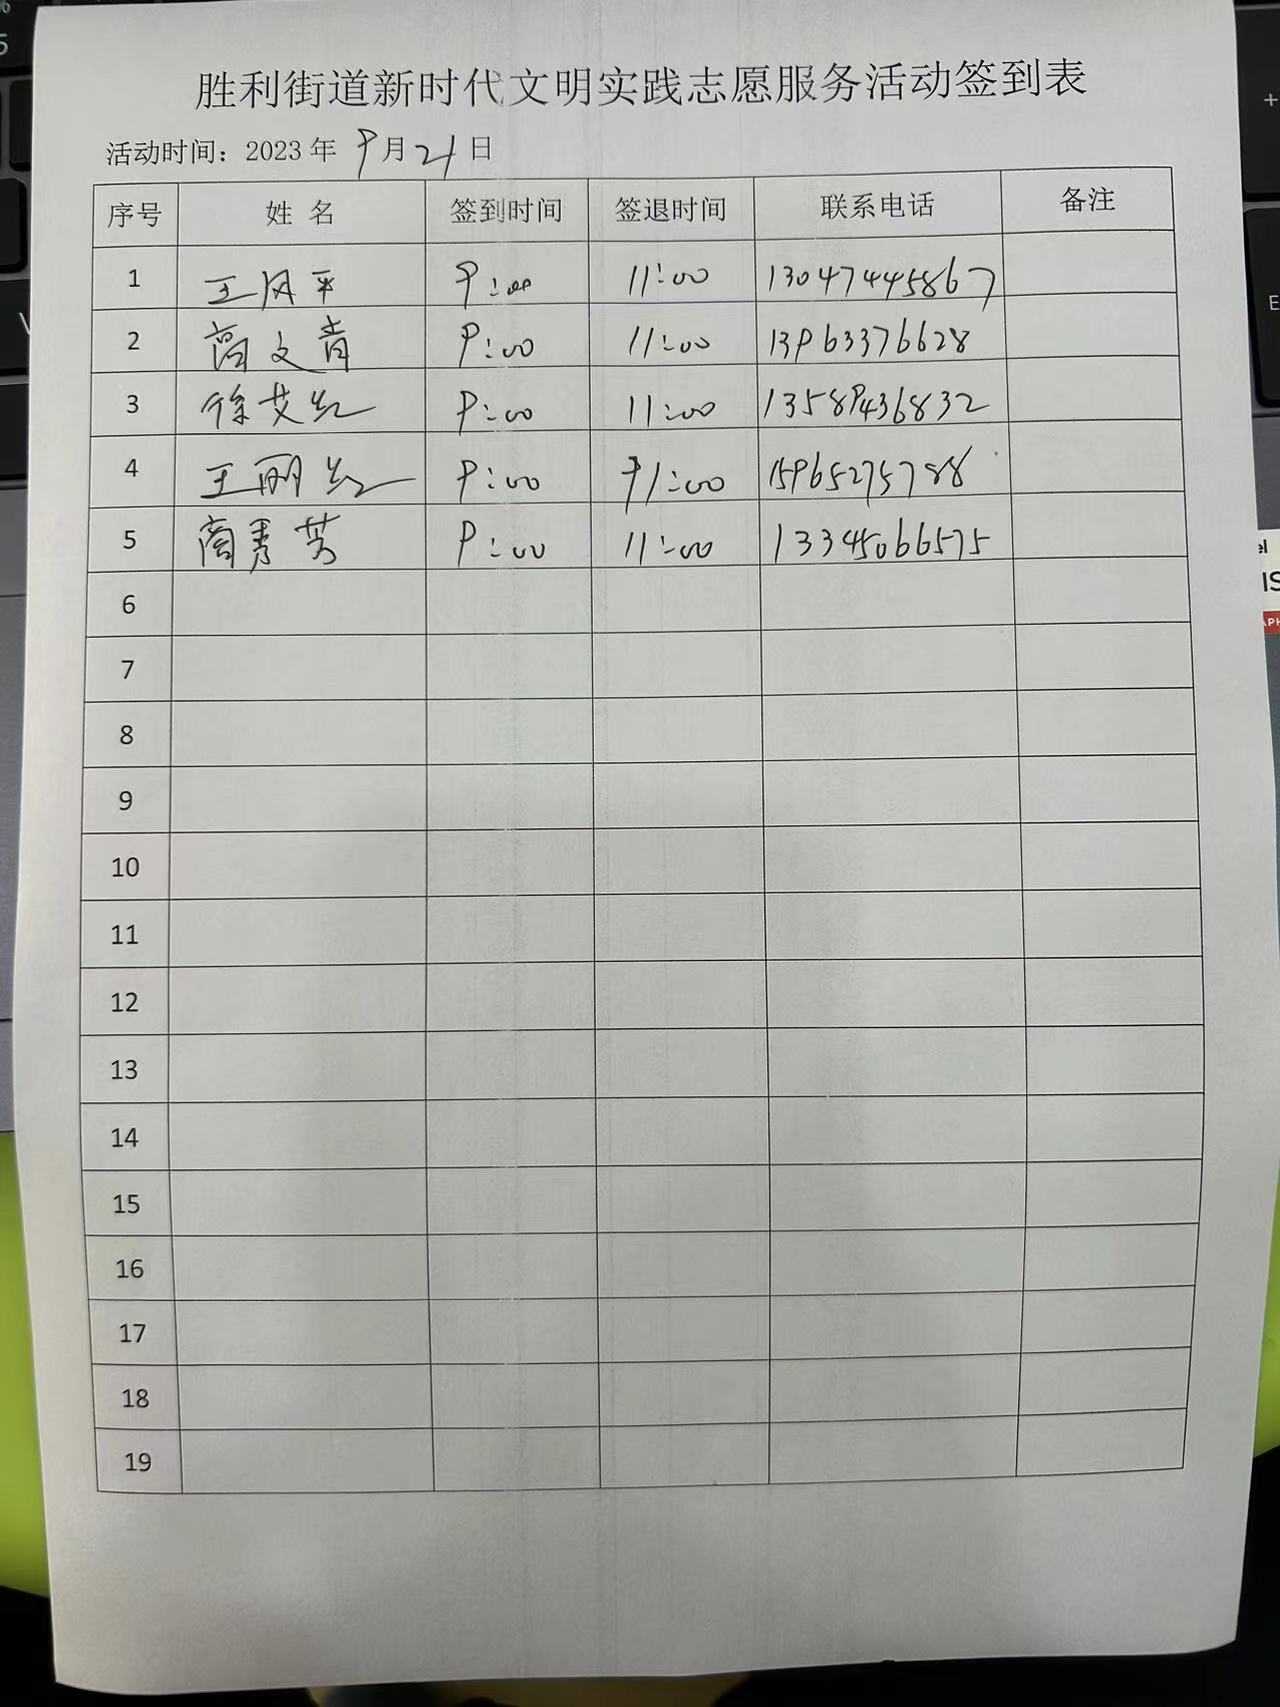 胜利街道新时代文明实践志愿服务活动签到表
活动时间：2023年 9月21日
序号 姓 名 签到时间 签退时间 联系电话 备注
1 王风平 9:00 11:00 13047445867
2 商文青 9:00 11:00 13963376628
3 徐艾红 9:00 11:00 13589436832
4 王丽红 9:00 11:00 15965275788
5 商秀芳 9:00 11:00 13345066575
6
7
8
9
10
11
12
13
14
15
16
17
18
19